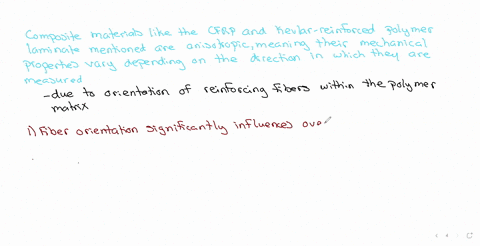 Composite materials like the CFRP and Kevlar-reinforced polymer
laminate mentioned are anisotropic, meaning their mechanical
properties vary depending on the direction in which they are
measured
-due to orientation of reinforcing fibers within the polymer
matrix
1) Fiber orientation significantly influences ove